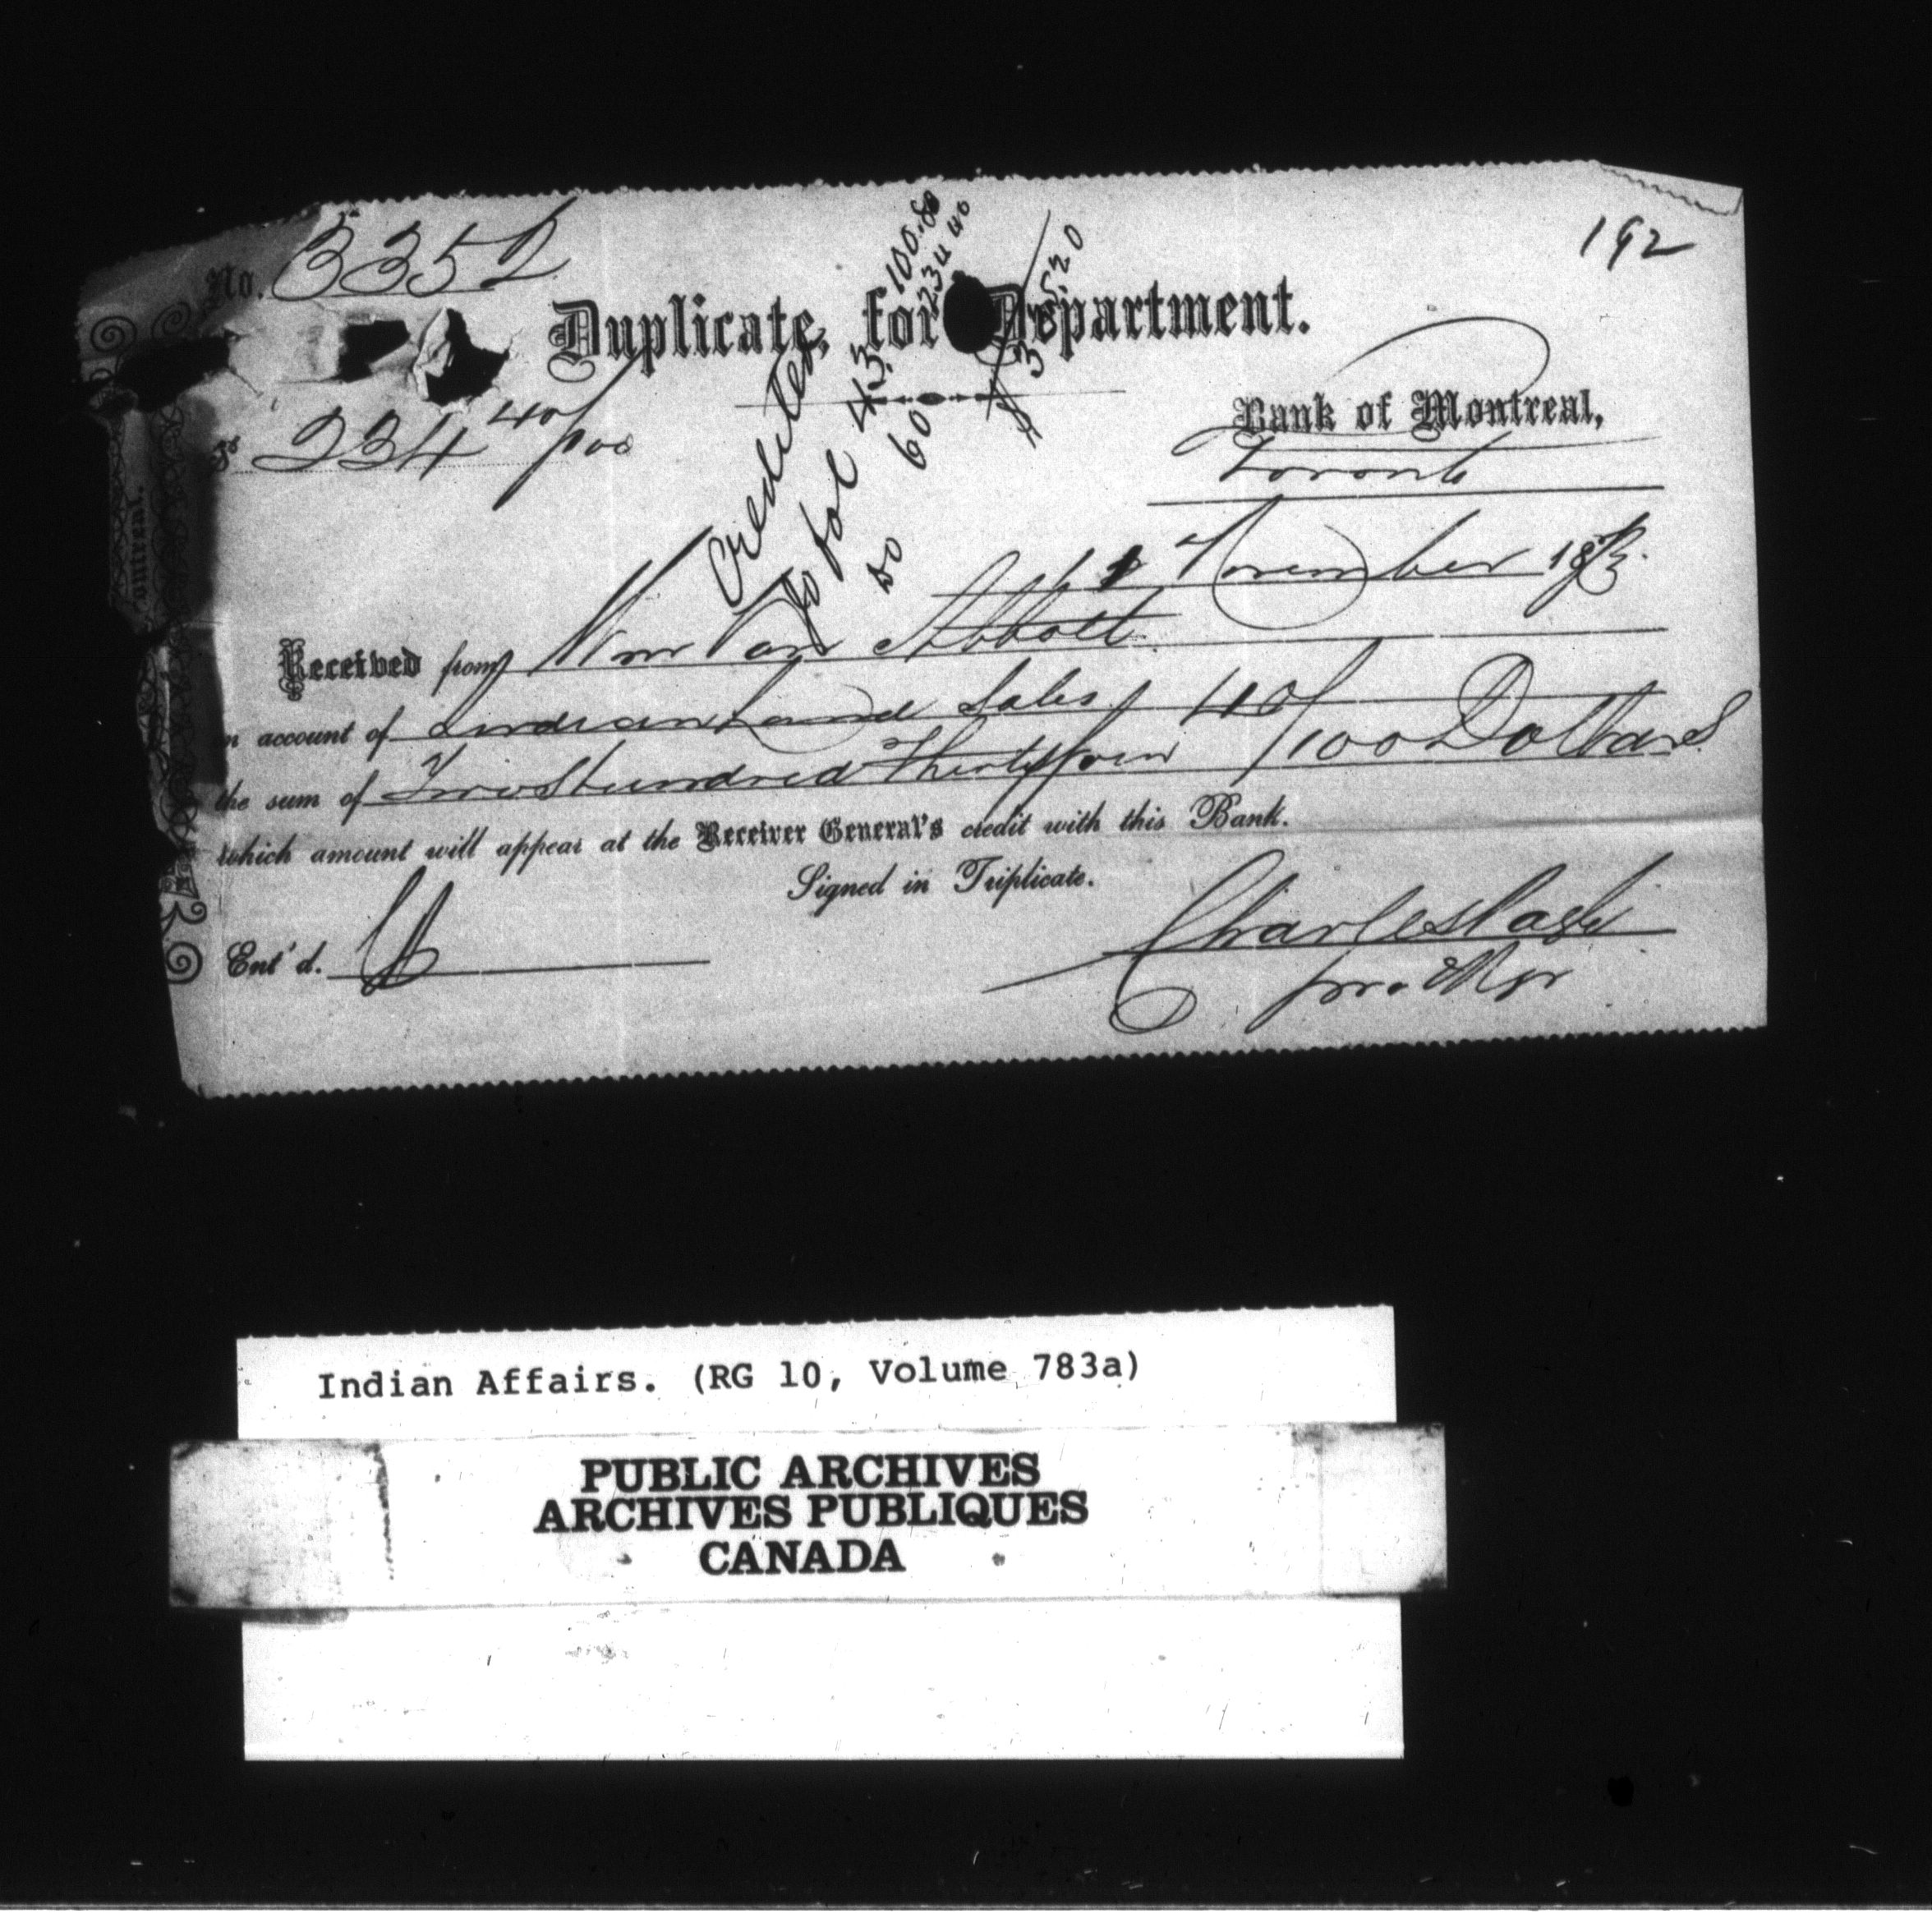 192
No. 3352
Duplicate, for Department.
$ 234 40/100
Credited
to fol 43 100.80
Do 60 234 40
$ 335.20
Bank of Montreal,
Toronto
1 November 1873.
Received from Wm Van Abbott.
n account of Indian Land Sales
the sum of Two Hundred Thirty four 40/100 Dollars
which amount will appear at the Receiver General's credit with this Bank.
Signed in Triplicate.
Ent'd.
Charles
pro. Mgr
ontreal.
Indian Affairs. (RG 10, Volume 783a)
PUBLIC ARCHIVES
ARCHIVES PUBLIQUES
CANADA